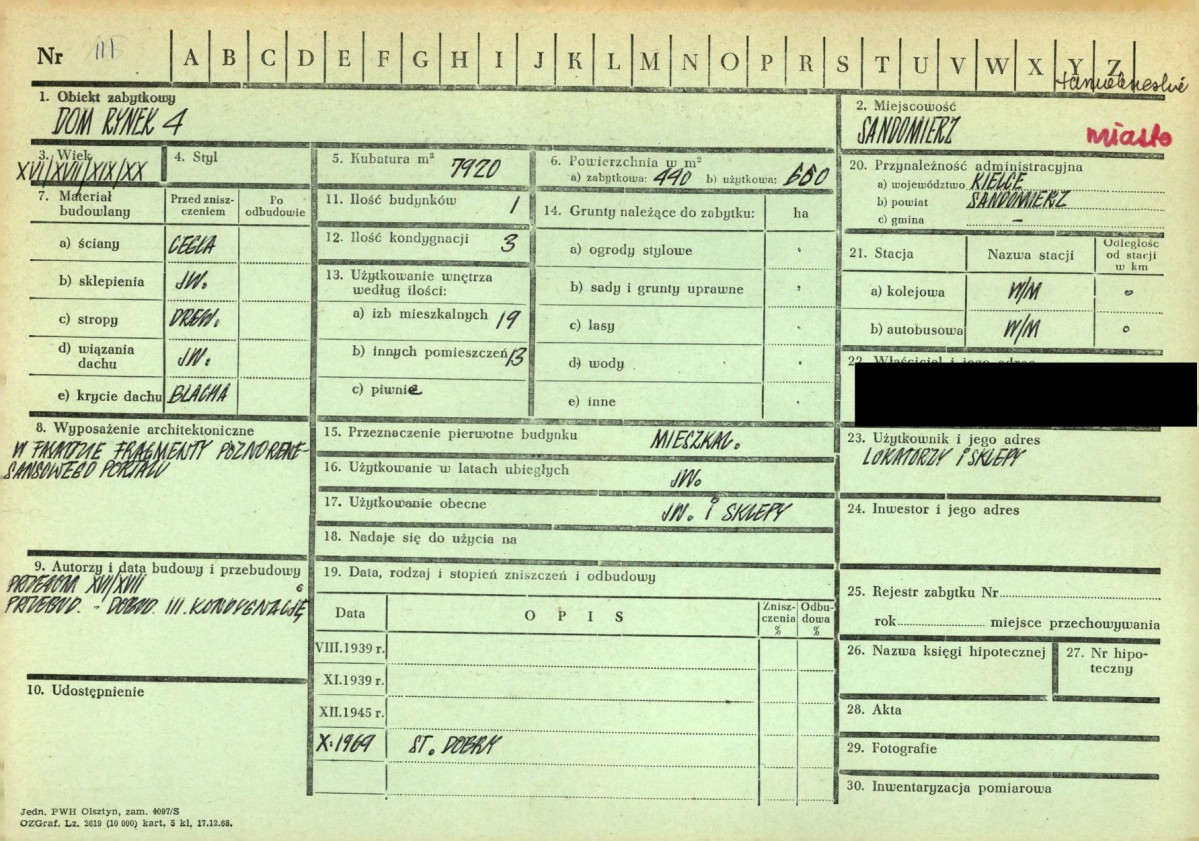 Nr III A B C D E F G H I J K L M N O P R S T U V W X Y Z
1. Obiekt zabytkowy
DOM RYNEK 4
2. Miejscowość
SANDOMIERZ miasto
3. Wiek
XVI/XVII/XIX/XX
4. Styl
5. Kubatura m³ 7920
6. Powierzchnia w m²
a) zabytkowa: 440 b) użytkowa:
7. Materiał budowlany
Przed zniszczeniem
Po odbudowie
a) ściany CEGŁA
b) sklepienia JW.
c) stropy DREW.
d) wiązania dachu JW.
e) krycie dachu BLACHA
8. Wyposażenie architektoniczne
W FASADZIE FRAGMENTY PÓŹNORENE-
SANSOWEGO PORTALU
9. Autorzy i data budowy i przebudowy
PRZEŁOM XVI/XVII
PRZEBUD. - DOBUD. III. KONDYGNACJĘ
10. Udostępnienie
11. Ilość budynków 1
12. Ilość kondygnacji 3
13. Użytkowanie wnętrza
według ilości:
a) izb mieszkalnych 19
b) innych pomieszczeń 13
c) piwnic
14. Grunty należące do zabytku: ha
a) ogrody stylowe
b) sady i grunty uprawne
c) lasy
d) wody
e) inne
15. Przeznaczenie pierwotne budynku MIESZKAL.
16. Użytkowanie w latach ubiegłych
JW.
17. Użytkowanie obecne
JW. i SKLEPY
18. Nadaje się do użycia na
19. Data, rodzaj i stopień zniszczeń i odbudowy
Data O P I S Znisz-czenia % Odbu-dowa %
VIII.1939 r.
XI.1939 r.
XII.1945 r.
X.1969 ST. DOBRY
20. Przynależność administracyjna
a) województwo KIELCE
b) powiat SANDOMIERZ
c) gmina –
21. Stacja Nazwa stacji Odległość od stacji w km
a) kolejowa W/M
b) autobusowa W/M
22. Właściciel i jego adres
23. Użytkownik i jego adres
LOKATORZY i SKLEPY
24. Inwestor i jego adres
25. Rejestr zabytku Nr
rok miejsce przechowywania
26. Nazwa księgi hipotecznej
27. Nr hipo-
teczny
28. Akta
29. Fotografie
30. Inwentaryzacja pomiarowa
Jedn. PWH Olsztyn, zam. 4097/S
OZGraf. Lz. 2619 (10 000) kart. 5 kl. 17.12.68.